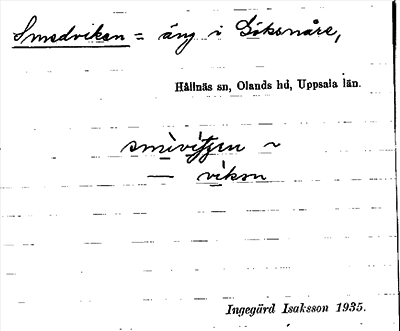 Smedviken = äng i Böksnåre,
Hållnäs sn, Olands hd, Uppsala län.
smivitjen ~
— vikən
Ingegärd Isaksson 1935.